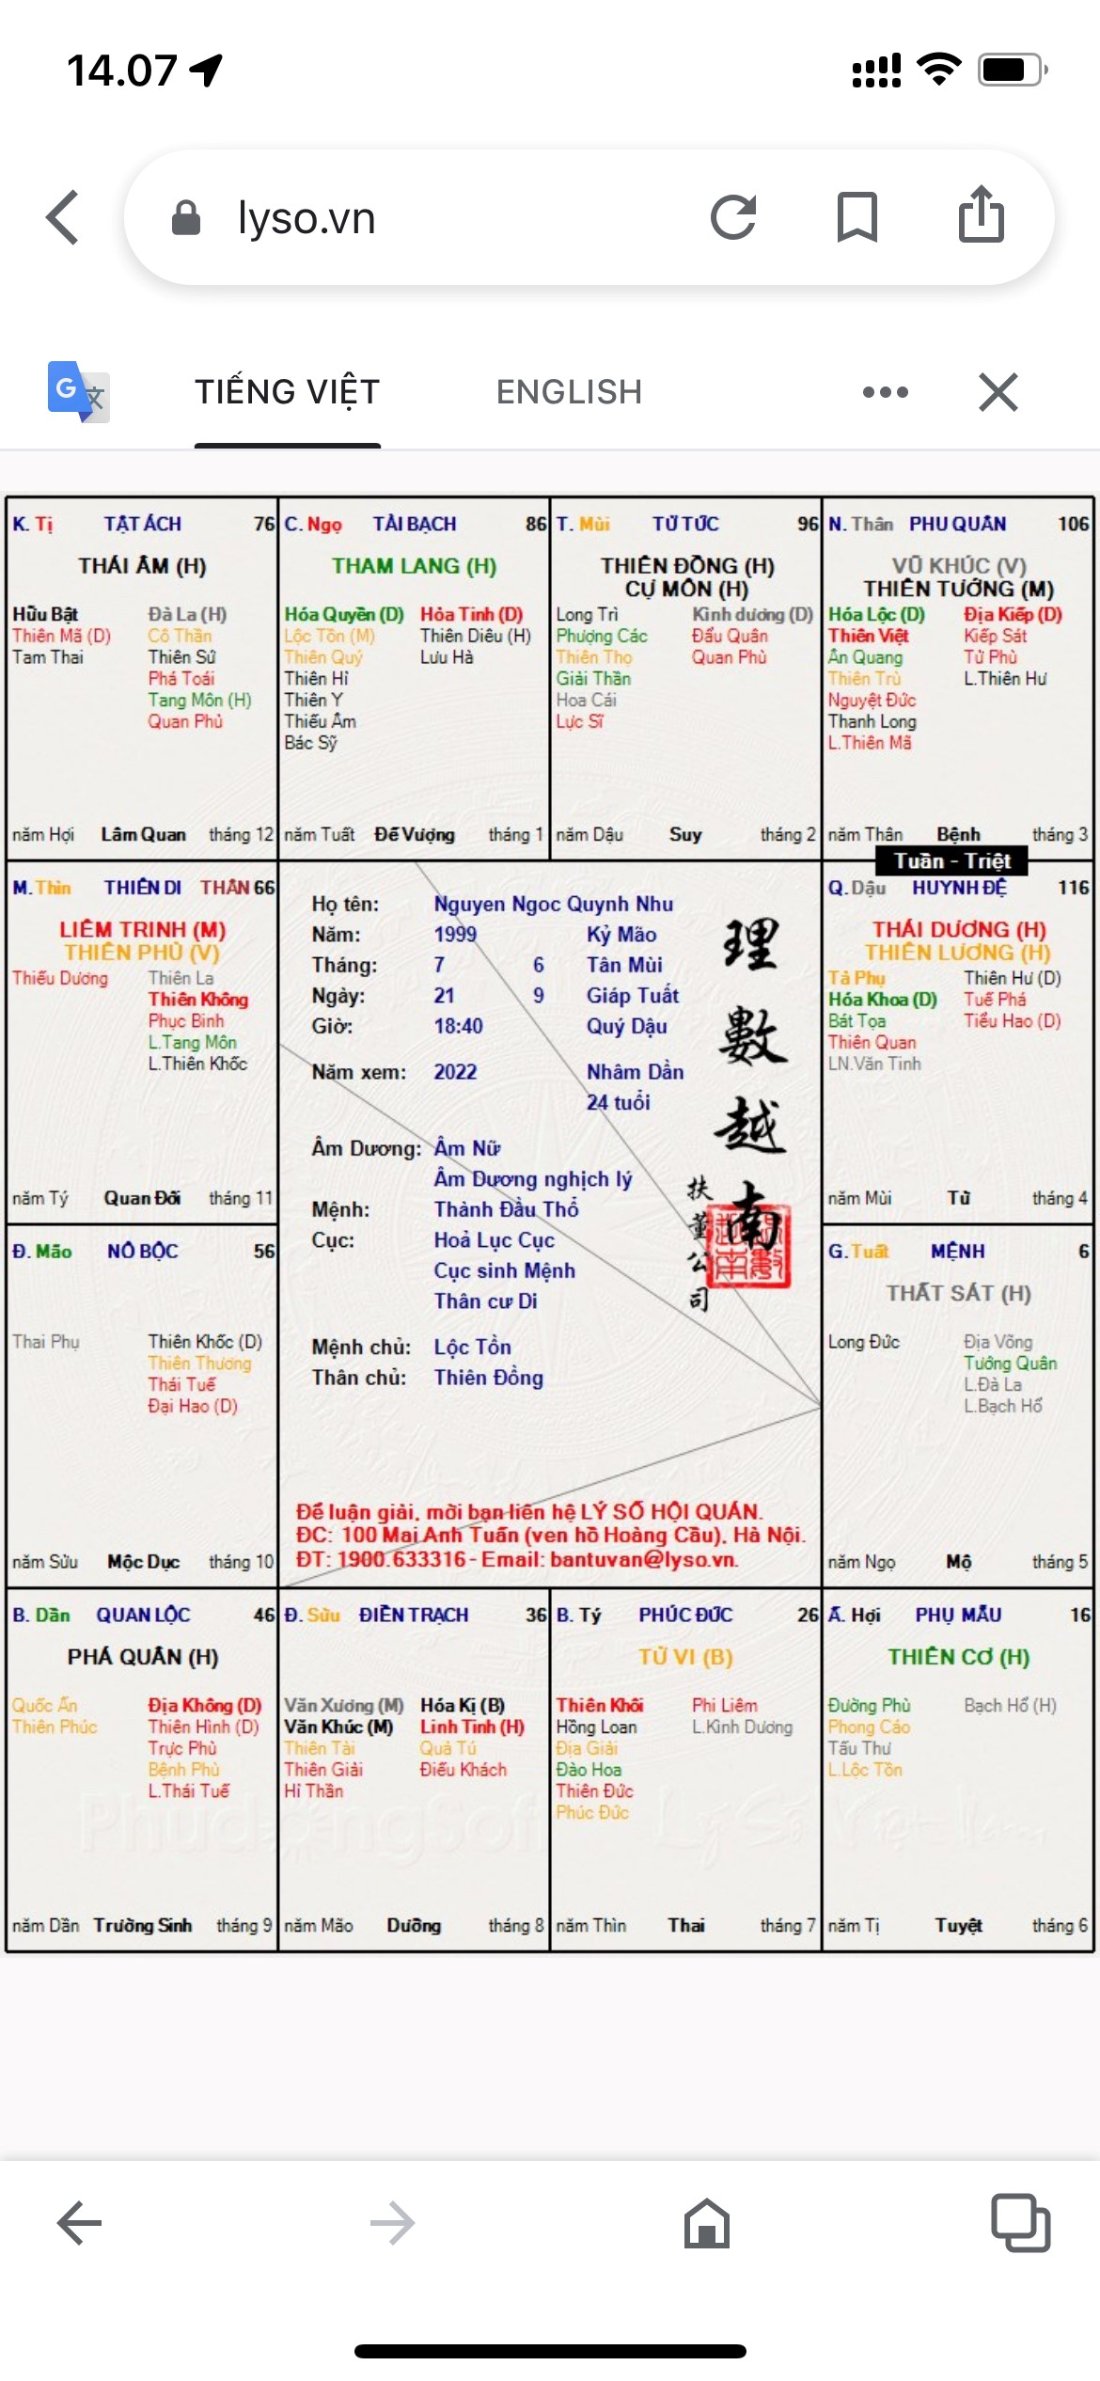 14.07
lyso.vn
TIẾNG VIỆT ENGLISH
K. Tị TẬT ÁCH 76
THÁI ÂM (H)
Hữu Bật Đà La (H)
Thiên Mã (D) Cô Thần
Tam Thai Thiên Sứ
Phá Toái
Tang Môn (H)
Quan Phủ
năm Hợi Lâm Quan tháng 12
C. Ngọ TÀI BẠCH 86
THAM LANG (H)
Hóa Quyền (D) Hỏa Tinh (D)
Lộc Tồn (M) Thiên Diêu (H)
Thiên Quý Lưu Hà
Thiên Hỉ
Thiên Y
Thiếu Âm
Bác Sỹ
năm Tuất Đế Vượng tháng 1
T. Mùi TỬ TỨC 96
THIÊN ĐỒNG (H)
CỰ MÔN (H)
Long Trì Kình dương (D)
Phượng Các Đẩu Quân
Thiên Thọ Quan Phù
Giải Thần
Hoa Cái
Lực Sĩ
năm Dậu Suy tháng 2
N. Thân PHU QUÂN 106
VŨ KHÚC (V)
THIÊN TƯỚNG (M)
Hóa Lộc (D) Địa Kiếp (D)
Thiên Việt Kiếp Sát
Ân Quang Tử Phù
Thiên Trù L.Thiên Hư
Nguyệt Đức
Thanh Long
L.Thiên Mã
năm Thân Bệnh tháng 3
Tuần - Triệt
M. Thìn THIÊN DI THÂN 66
LIÊM TRINH (M)
THIÊN PHỦ (V)
Thiếu Dương Thiên La
Thiên Không
Phục Binh
L.Tang Môn
L.Thiên Khốc
năm Tý Quan Đới tháng 11
Họ tên: Nguyen Ngoc Quynh Nhu
Năm: 1999 Kỷ Mão
Tháng: 7 6 Tân Mùi
Ngày: 21 9 Giáp Tuất
Giờ: 18:40 Quý Dậu
Năm xem: 2022 Nhâm Dần
24 tuổi
Âm Dương: Âm Nữ
Âm Dương nghịch lý
Mệnh: Thành Đầu Thổ
Cục: Hoả Lục Cục
Cục sinh Mệnh
Thân cư Di
Mệnh chủ: Lộc Tồn
Thân chủ: Thiên Đồng
理數越南
扶董公司
Để luận giải, mời bạn liên hệ LÝ SỐ HỘI QUÁN.
ĐC: 100 Mai Anh Tuấn (ven hồ Hoàng Cầu), Hà Nội.
ĐT: 1900.633316 - Email: bantuvan@lyso.vn.
Q. Dậu HUYNH ĐỆ 116
THÁI DƯƠNG (H)
THIÊN LƯƠNG (H)
Tả Phụ Thiên Hư (D)
Hóa Khoa (D) Tuế Phá
Bát Tọa Tiểu Hao (D)
Thiên Quan
LN.Văn Tinh
năm Mùi Tử tháng 4
Đ. Mão NÔ BỘC 56
Thai Phụ Thiên Khốc (D)
Thiên Thương
Thái Tuế
Đại Hao (D)
năm Sửu Mộc Dục tháng 10
G. Tuất MỆNH 6
THẤT SÁT (H)
Long Đức Địa Võng
Tướng Quân
L.Đà La
L.Bạch Hổ
năm Ngọ Mộ tháng 5
B. Dần QUAN LỘC 46
PHÁ QUÂN (H)
Quốc Ấn Địa Không (D)
Thiên Phúc Thiên Hình (D)
Trực Phù
Bệnh Phù
L.Thái Tuế
năm Dần Trường Sinh tháng 9
Đ. Sửu ĐIỀN TRẠCH 36
Văn Xương (M) Hóa Kị (B)
Văn Khúc (M) Linh Tinh (H)
Thiên Tài Quả Tú
Thiên Giải Điếu Khách
Hỉ Thần
năm Mão Dưỡng tháng 8
B. Tý PHÚC ĐỨC 26
TỬ VI (B)
Thiên Khôi Phi Liêm
Hồng Loan L.Kình Dương
Địa Giải
Đào Hoa
Thiên Đức
Phúc Đức
năm Thìn Thai tháng 7
Ấ. Hợi PHỤ MẪU 16
THIÊN CƠ (H)
Đường Phù Bạch Hổ (H)
Phong Cáo
Tấu Thư
L.Lộc Tồn
năm Tị Tuyệt tháng 6